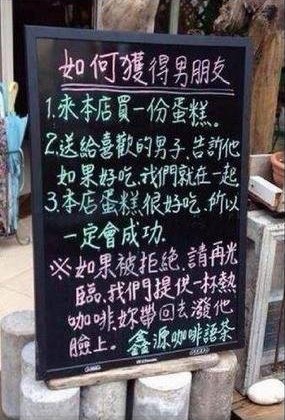 如何獲得男朋友
1.來本店買一份蛋糕。
2.送給喜歡的男子.告訴他
如果好吃.我們就在一起
3.本店蛋糕很好吃.所以
一定會成功.
※如果被拒絕.請再光
臨.我們提供一杯熱
咖啡.妳帶回去潑他
臉上。鑫源咖啡語茶